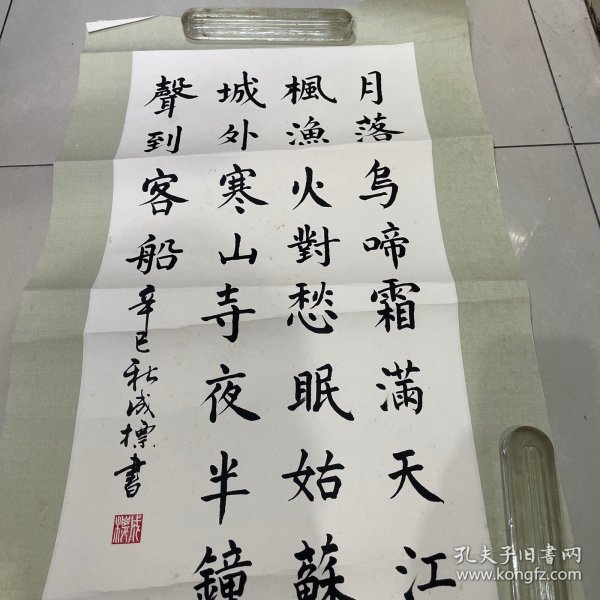 月落烏啼霜滿天江
楓漁火對愁眠姑蘇
城外寒山寺夜半鐘
聲到客船
辛巳秋成標書
孔夫子旧書网
www.kongfz.com